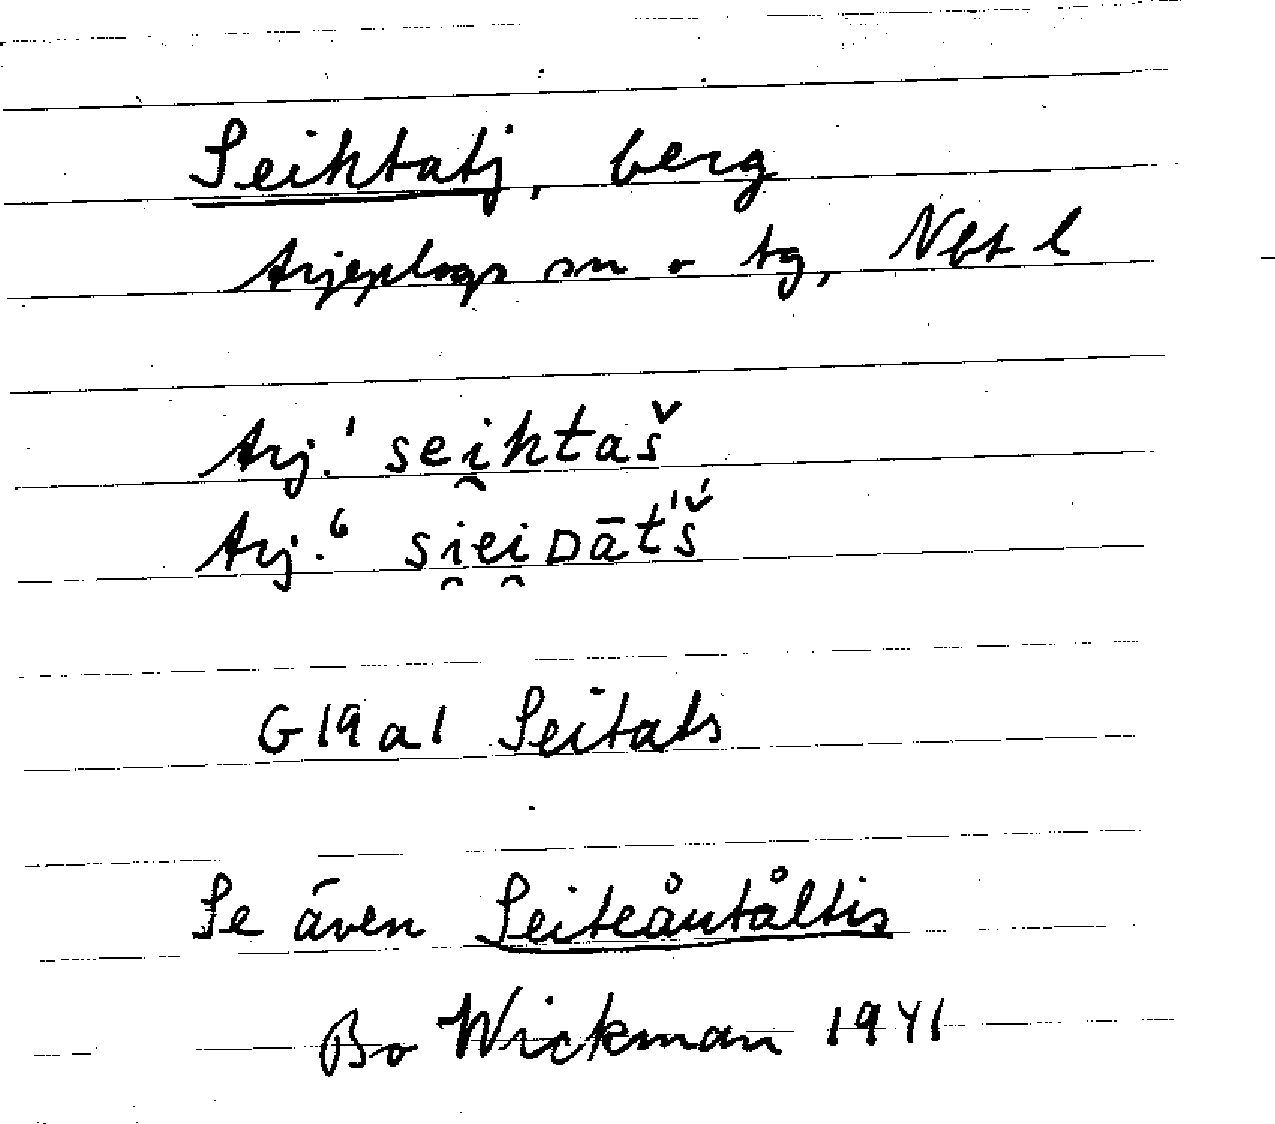 Seihtatj, berg
Arjeplogs sn o tg, Nbt l
Arj.¹ sei̯htaš
Arj.⁶ si̯ei̯ᴅāt́š́
G19a1 Seitats
Se även Seiteåutåltis
Bo Wickman 1941